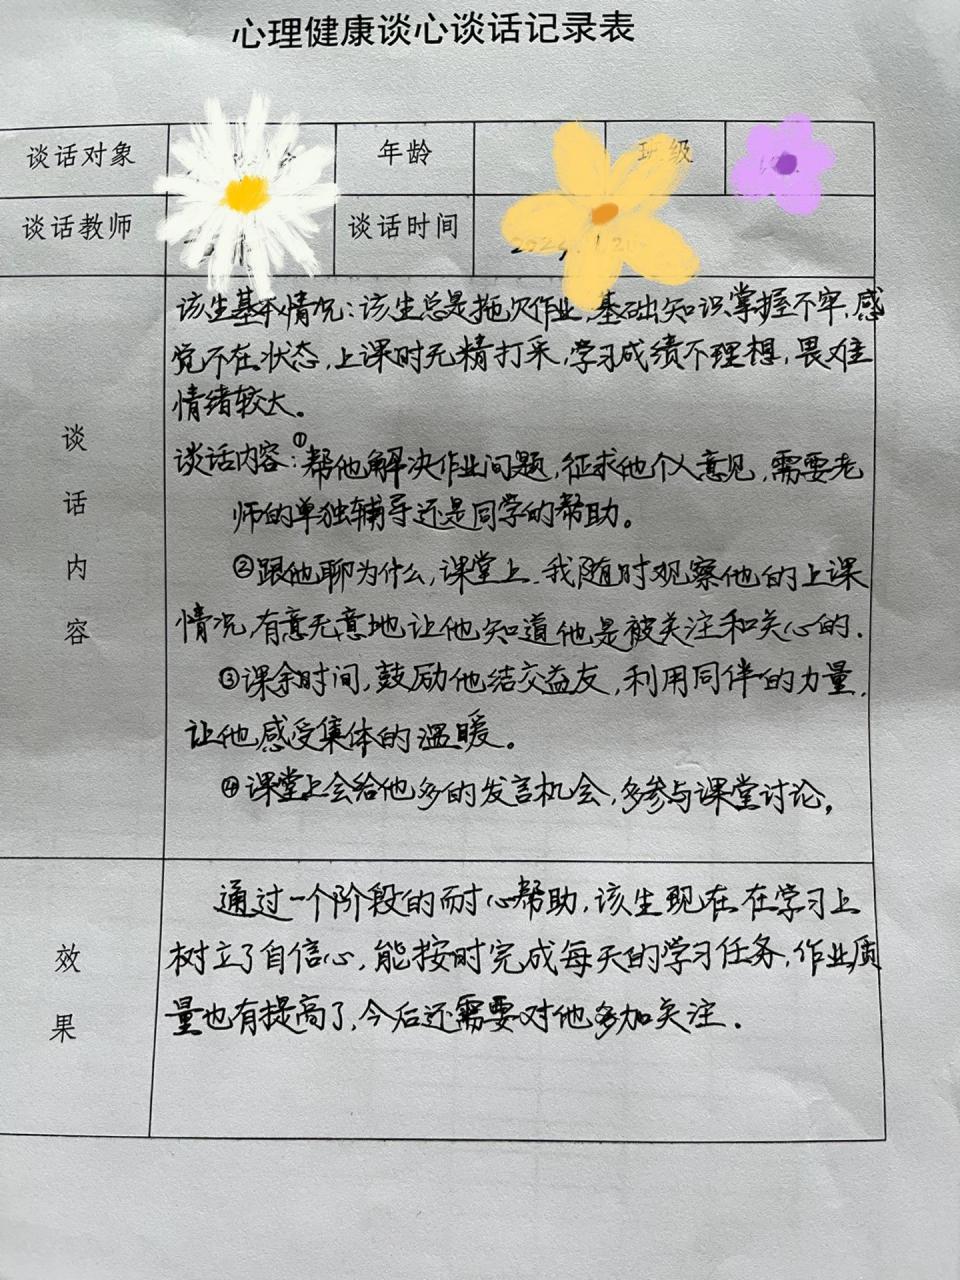 心理健康谈心谈话记录表
谈话对象 年龄 班级
谈话教师 谈话时间
谈话内容
该生基本情况：该生总是拖欠作业，基础知识掌握不牢，感
觉不在状态，上课时无精打采，学习成绩不理想，畏难
情绪较大。
谈话内容：①帮他解决作业问题，征求他个人意见，需要老
师的单独辅导还是同学的帮助。
②跟他聊为什么，课堂上，我随时观察他的上课
情况，有意无意地让他知道他是被关注和关心的.
③课余时间，鼓励他结交益友，利用同伴的力量，
让他感受集体的温暖。
④课堂上会给他多的发言机会，多参与课堂讨论，
效果
通过一个阶段的耐心帮助，该生现在在学习上
树立了自信心，能按时完成每天的学习任务，作业质
量也有提高了，今后还需要对他多加关注.